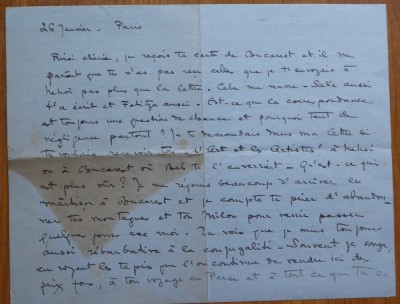 26 Janvier - Paris
chérie, je reçois ta carte de Bucarest et il me
paraît que tu n'as pas reçu celle que je t'envoyais à
pas plus que la lettre. Cela me navre - aussi
t'a écrit et aussi. Est-ce que la correspondance
est toujours une question de chance et pourquoi tant de
négligence partout? Je te demandais dans ma lettre si
tu voulais recevoir "L'Art et les Artistes" à
ou à Bucarest où te l'enverrait - Qu'est-ce qui
est plus sûr? Je me réjouis beaucoup d'arriver en
à Bucarest et je compte te prier d'abandon-
ner tes montagnes et ton Milon pour venir passer
quelques jours avec moi. Tu vois que je suis toujours
aussi rébarbative à la conjugalité - Souvent je songe
en voyant les tapis que l'on continue de vendre ici des
prix fous, à ton voyage en Perse et à tout ce que tu en